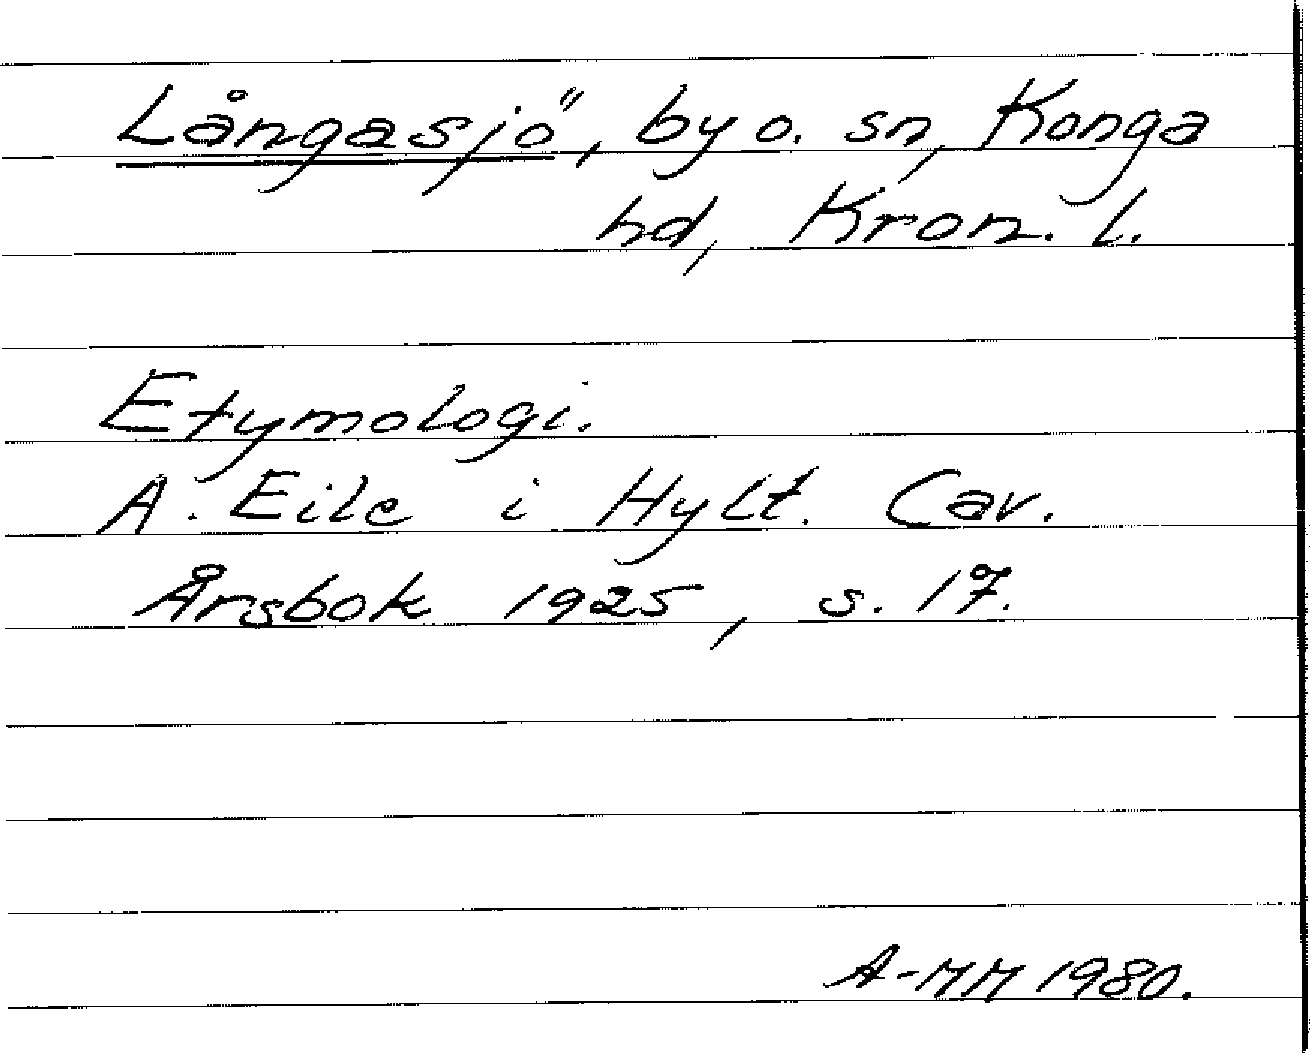 Långasjö, by o. sn, Konga
hd, Kron. l.
Etymologi.
A. Eile i Hylt. Cav.
Årsbok 1925, s. 17.
A-MM 1980.